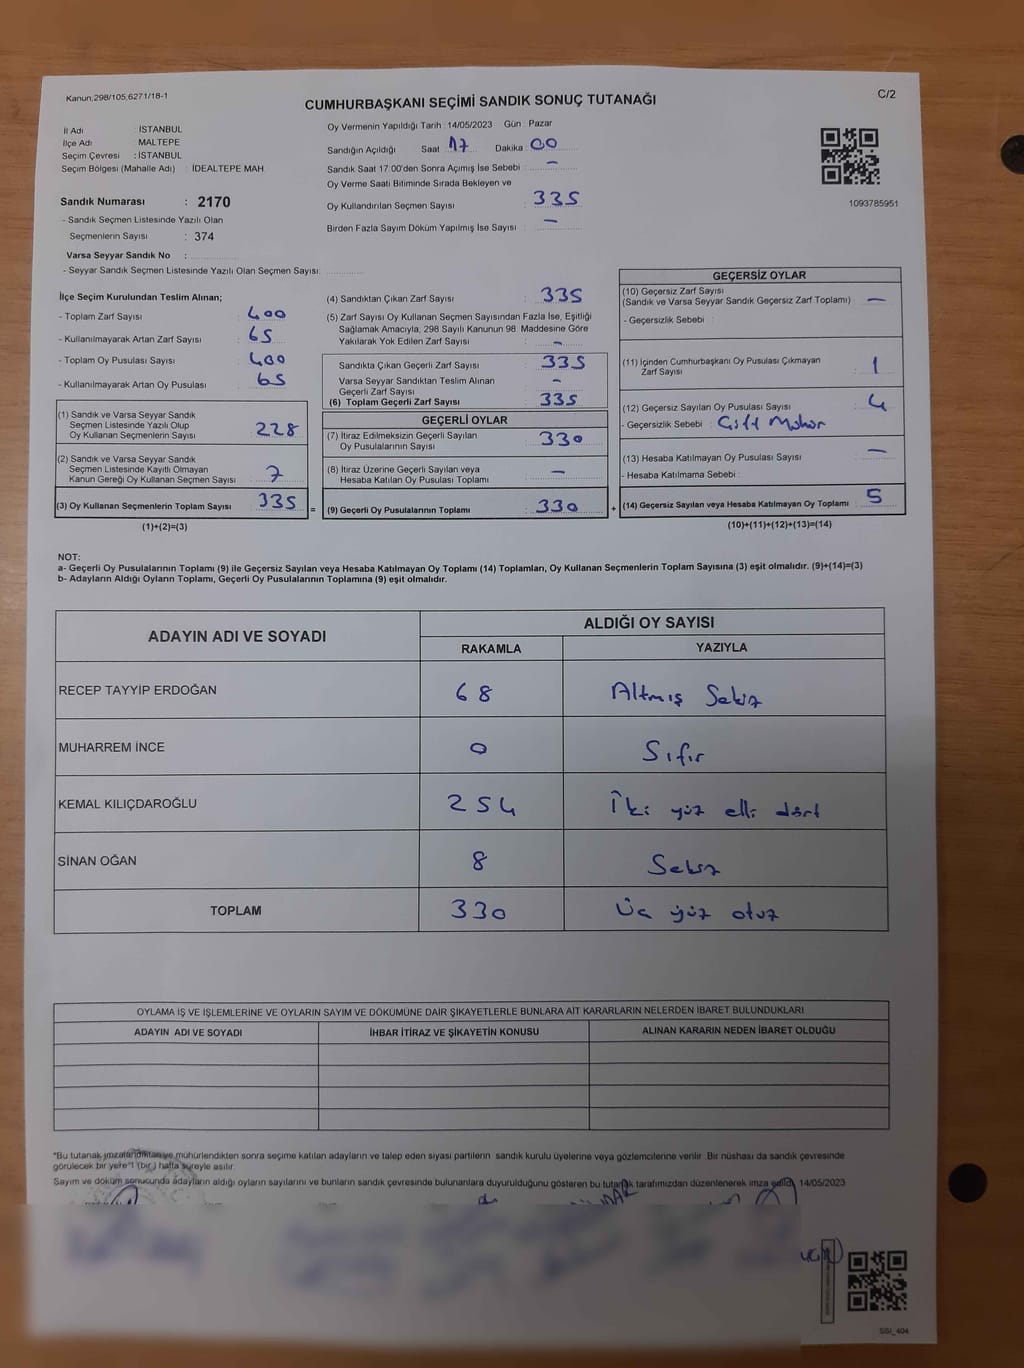 Kanun:298/105,6271/18-1
C/2
CUMHURBAŞKANI SEÇİMİ SANDIK SONUÇ TUTANAĞI
İl Adı : İSTANBUL
İlçe Adı : MALTEPE
Seçim Çevresi : İSTANBUL
Seçim Bölgesi (Mahalle Adı) : İDEALTEPE MAH
Sandık Numarası : 2170
- Sandık Seçmen Listesinde Yazılı Olan
Seçmenlerin Sayısı : 374
Varsa Seyyar Sandık No :
- Seyyar Sandık Seçmen Listesinde Yazılı Olan Seçmen Sayısı:
Oy Vermenin Yapıldığı Tarih : 14/05/2023 Gün : Pazar
Sandığın Açıldığı Saat 17 Dakika 00
Sandık Saat 17.00'den Sonra Açımış İse Sebebi : -
Oy Verme Saati Bitiminde Sırada Bekleyen ve
Oy Kullandırılan Seçmen Sayısı : 335
Birden Fazla Sayım Döküm Yapılmış İse Sayısı : -
1093785951
İlçe Seçim Kurulundan Teslim Alınan;
- Toplam Zarf Sayısı : 400
- Kullanılmayarak Artan Zarf Sayısı : 65
- Toplam Oy Pusulası Sayısı : 400
- Kullanılmayarak Artan Oy Pusulası : 65
(1) Sandık ve Varsa Seyyar Sandık
Seçmen Listesinde Yazılı Olup
Oy Kullanan Seçmenlerin Sayısı : 228
(2) Sandık ve Varsa Seyyar Sandık
Seçmen Listesinde Kayıtlı Olmayan
Kanun Gereği Oy Kullanan Seçmen Sayısı : 7
(3) Oy Kullanan Seçmenlerin Toplam Sayısı : 335 =
(1)+(2)=(3)
(4) Sandıktan Çıkan Zarf Sayısı : 335
(5) Zarf Sayısı Oy Kullanan Seçmen Sayısından Fazla İse, Eşitliği
Sağlamak Amacıyla, 298 Sayılı Kanunun 98. Maddesine Göre
Yakılarak Yok Edilen Zarf Sayısı : -
Sandıkta Çıkan Geçerli Zarf Sayısı : 335
Varsa Seyyar Sandıktan Teslim Alınan
Geçerli Zarf Sayısı : -
(6) Toplam Geçerli Zarf Sayısı : 335
GEÇERLİ OYLAR
(7) İtiraz Edilmeksizin Geçerli Sayılan
Oy Pusulalarının Sayısı : 330
(8) İtiraz Üzerine Geçerli Sayılan veya
Hesaba Katılan Oy Pusulası Toplamı : -
(9) Geçerli Oy Pusulalarının Toplamı : 330 +
GEÇERSİZ OYLAR
(10) Geçersiz Zarf Sayısı
(Sandık ve Varsa Seyyar Sandık Geçersiz Zarf Toplamı) : -
- Geçersizlik Sebebi :
(11) İçinden Cumhurbaşkanı Oy Pusulası Çıkmayan
Zarf Sayısı : 1
(12) Geçersiz Sayılan Oy Pusulası Sayısı : 4
- Geçersizlik Sebebi : Çift Mühür
(13) Hesaba Katılmayan Oy Pusulası Sayısı : -
- Hesaba Katılmama Sebebi :
(14) Geçersiz Sayılan veya Hesaba Katılmayan Oy Toplamı : 5
(10)+(11)+(12)+(13)=(14)
NOT:
a- Geçerli Oy Pusulalarının Toplamı (9) ile Geçersiz Sayılan veya Hesaba Katılmayan Oy Toplamı (14) Toplamları, Oy Kullanan Seçmenlerin Toplam Sayısına (3) eşit olmalıdır. (9)+(14)=(3)
b- Adayların Aldığı Oyların Toplamı, Geçerli Oy Pusulalarının Toplamına (9) eşit olmalıdır.
ADAYIN ADI VE SOYADI ALDIĞI OY SAYISI
RAKAMLA YAZIYLA
RECEP TAYYİP ERDOĞAN 68 Altmış Sekiz
MUHARREM İNCE 0 Sıfır
KEMAL KILIÇDAROĞLU 254 İki yüz elli dört
SİNAN OĞAN 8 Sekiz
TOPLAM 330 Üç yüz otuz
OYLAMA İŞ VE İŞLEMLERİNE VE OYLARIN SAYIM VE DÖKÜMÜNE DAİR ŞİKAYETLERLE BUNLARA AİT KARARLARIN NELERDEN İBARET BULUNDUKLARI
ADAYIN ADI VE SOYADI İHBAR İTİRAZ VE ŞİKAYETİN KONUSU ALINAN KARARIN NEDEN İBARET OLDUĞU
"Bu tutanak imzalandıktan ve mühürlendikten sonra seçime katılan adayların ve talep eden siyasi partilerin sandık kurulu üyelerine veya gözlemcilerine verilir. Bir nüshası da sandık çevresinde
görülecek bir yere"1 (bir ) hafta süreyle asılır.
Sayım ve döküm sonucunda adayların aldığı oyların sayılarını ve bunların sandık çevresinde bulunanlara duyurulduğunu gösteren bu tutanak tarafımızdan düzenlenerek imza edildi. 14/05/2023
SSI_404